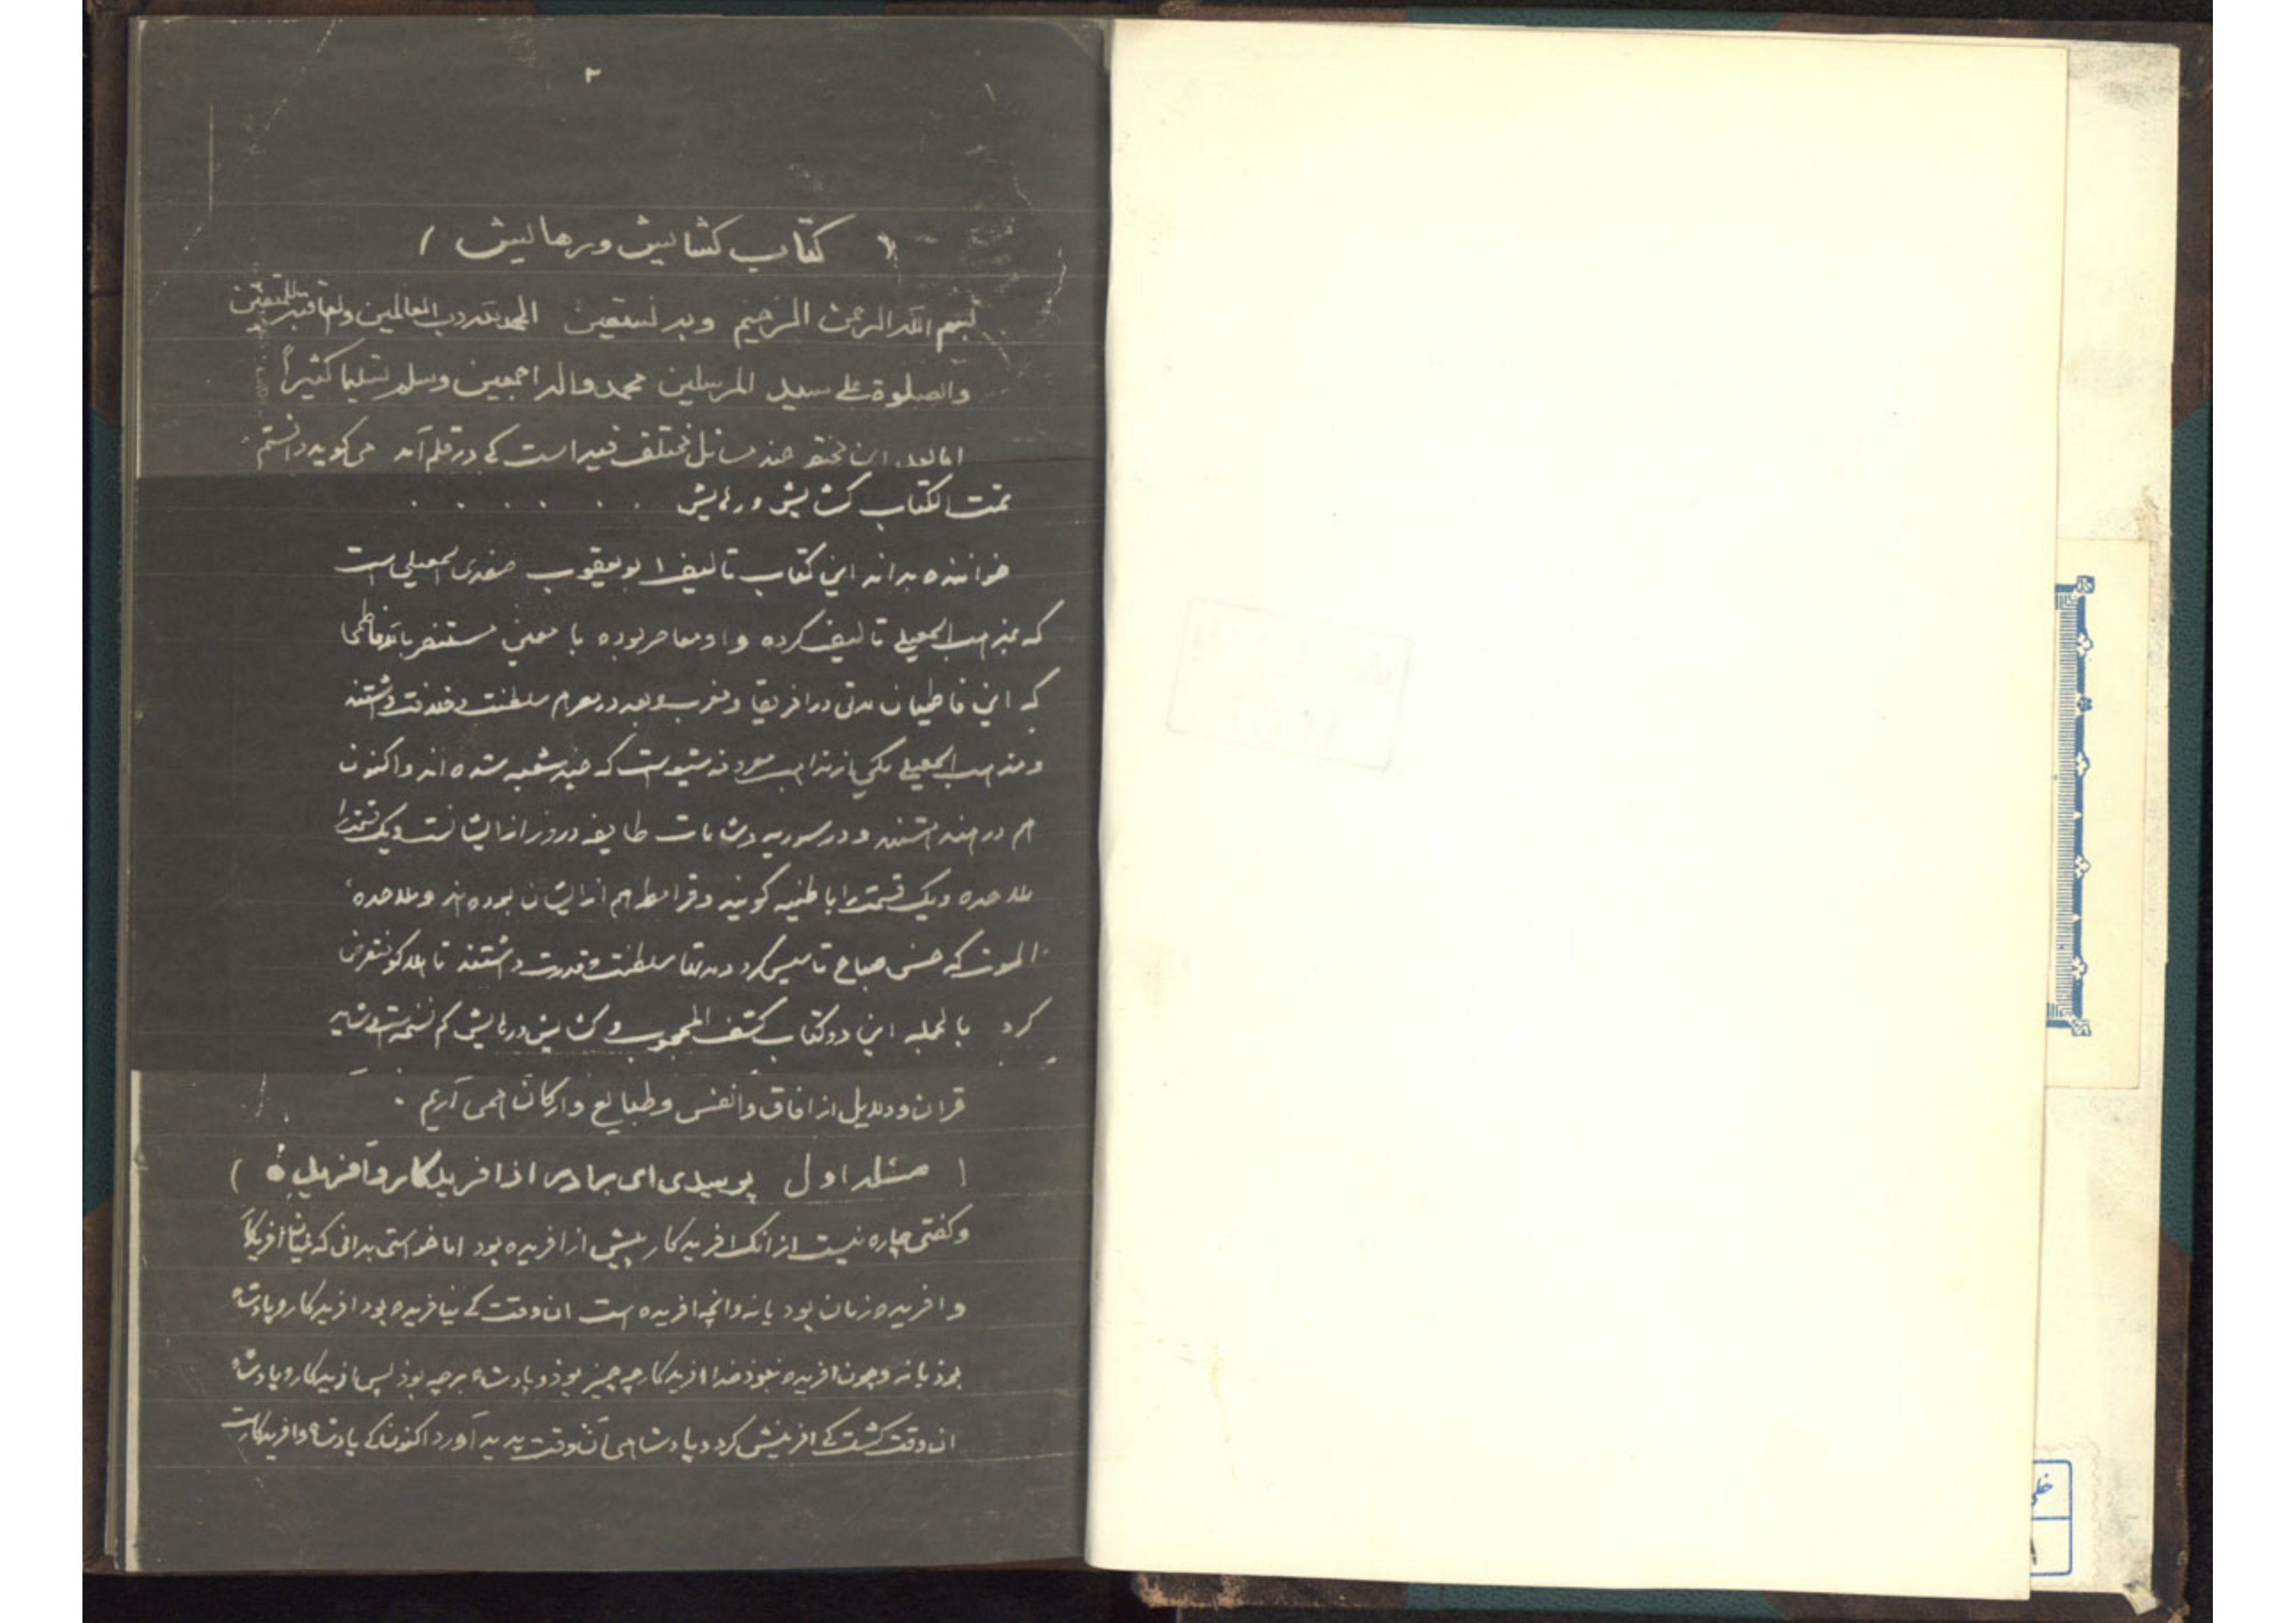 ۲
( کتاب کشایش ورهایش )
بسم الله الرحمن الرحیم وبه نستعین الحمدلله رب العالمین والعاقبة للمتقین
والصلوة علی سید المرسلین محمد واله اجمعین وسلم تسلیما کثیراً
اما بعد این مختصر چند مسائل مختلف فیه است کی در قلم آمد می کوید دانستم
تمت الکتاب کشایش ورهایش . . . . . .
خواننده بداند این کتاب تالیف ابویعقوب اسمعیلی است
که بمذهب اسمعیلی تالیف کرده و او معاصر بوده با مستنصر بالله فاطمی
که این فاطمیان مدتی در افریقا ومغرب وبعد در مصر هم سلطنت وخلافت داشتند
ومذهب اسمعیلی یکی از مذاهب معروفه شیعه است که چند شعبه شده اند و اکنون
هم در هند هستند و در سوریه وشامات طایفه دروز از ایشانست ویک قسمت را
ملاحده ویک قسمت را باطنیه گویند وقرامطه هم از ایشان بوده اند وملاحده
الموت که حسن صباح تاسیس کرد ومدتها سلطنت وقدرت داشتند تا هلاکو منقرض
کرد بالجمله این دو کتاب کشف المحجوب وکشایش ورهایش کم نسخه است وشاید
قران ودلایل از افاق وانفس وطبایع وارکان همی آریم .
( مسئله اول پرسیدی ای برادر از افریدکار وآفریده )
وکفتی چاره نیست از انک افریدکار پیش از افریده بود اما خواستی بدانی که میان آفریدکار
وافریده زمان بود یا نه وانچه افریده است ان وقت کی نیافریده بود افریدکار وپادشاه
بوذ یا نه وچون افریده نبود خدا افریدکار چه چیز بوذ وپادشاه بر چه بوذ پس افریدکار وپادشاه
ان وقت کشت کی افرینش کرد وپادشاهی آن وقت پدید آورد اکنون کی پادشاه وافریدکارست